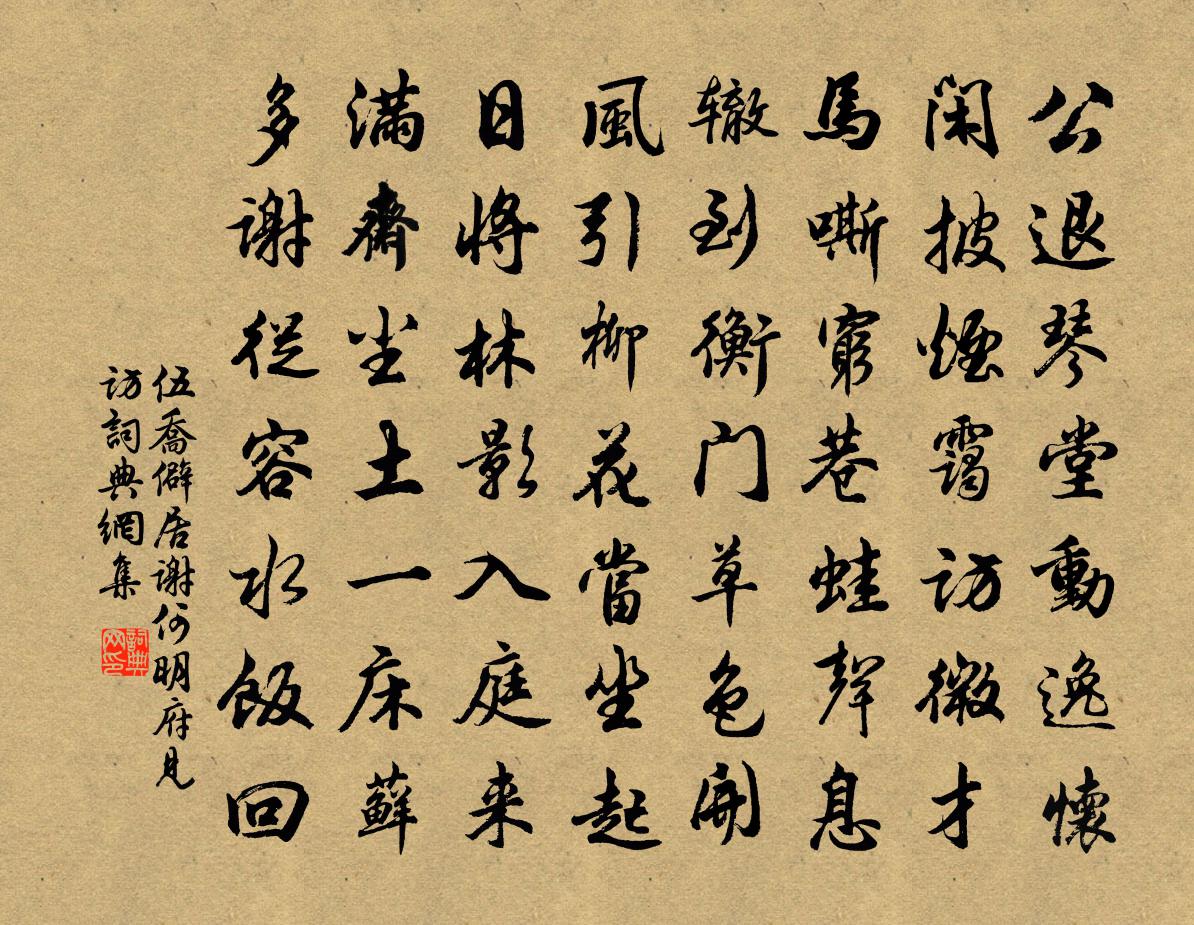 公退琴堂動逸懷
閑披煙靄訪微才
馬嘶窮巷蛙聲息
辙到衡门草色開
風引柳花當坐起
日將林影入庭来
滿齋尘土一床蘚
多谢從容水飯回
伍喬僻居谢何明府見
访詞典網集
詞典
网印